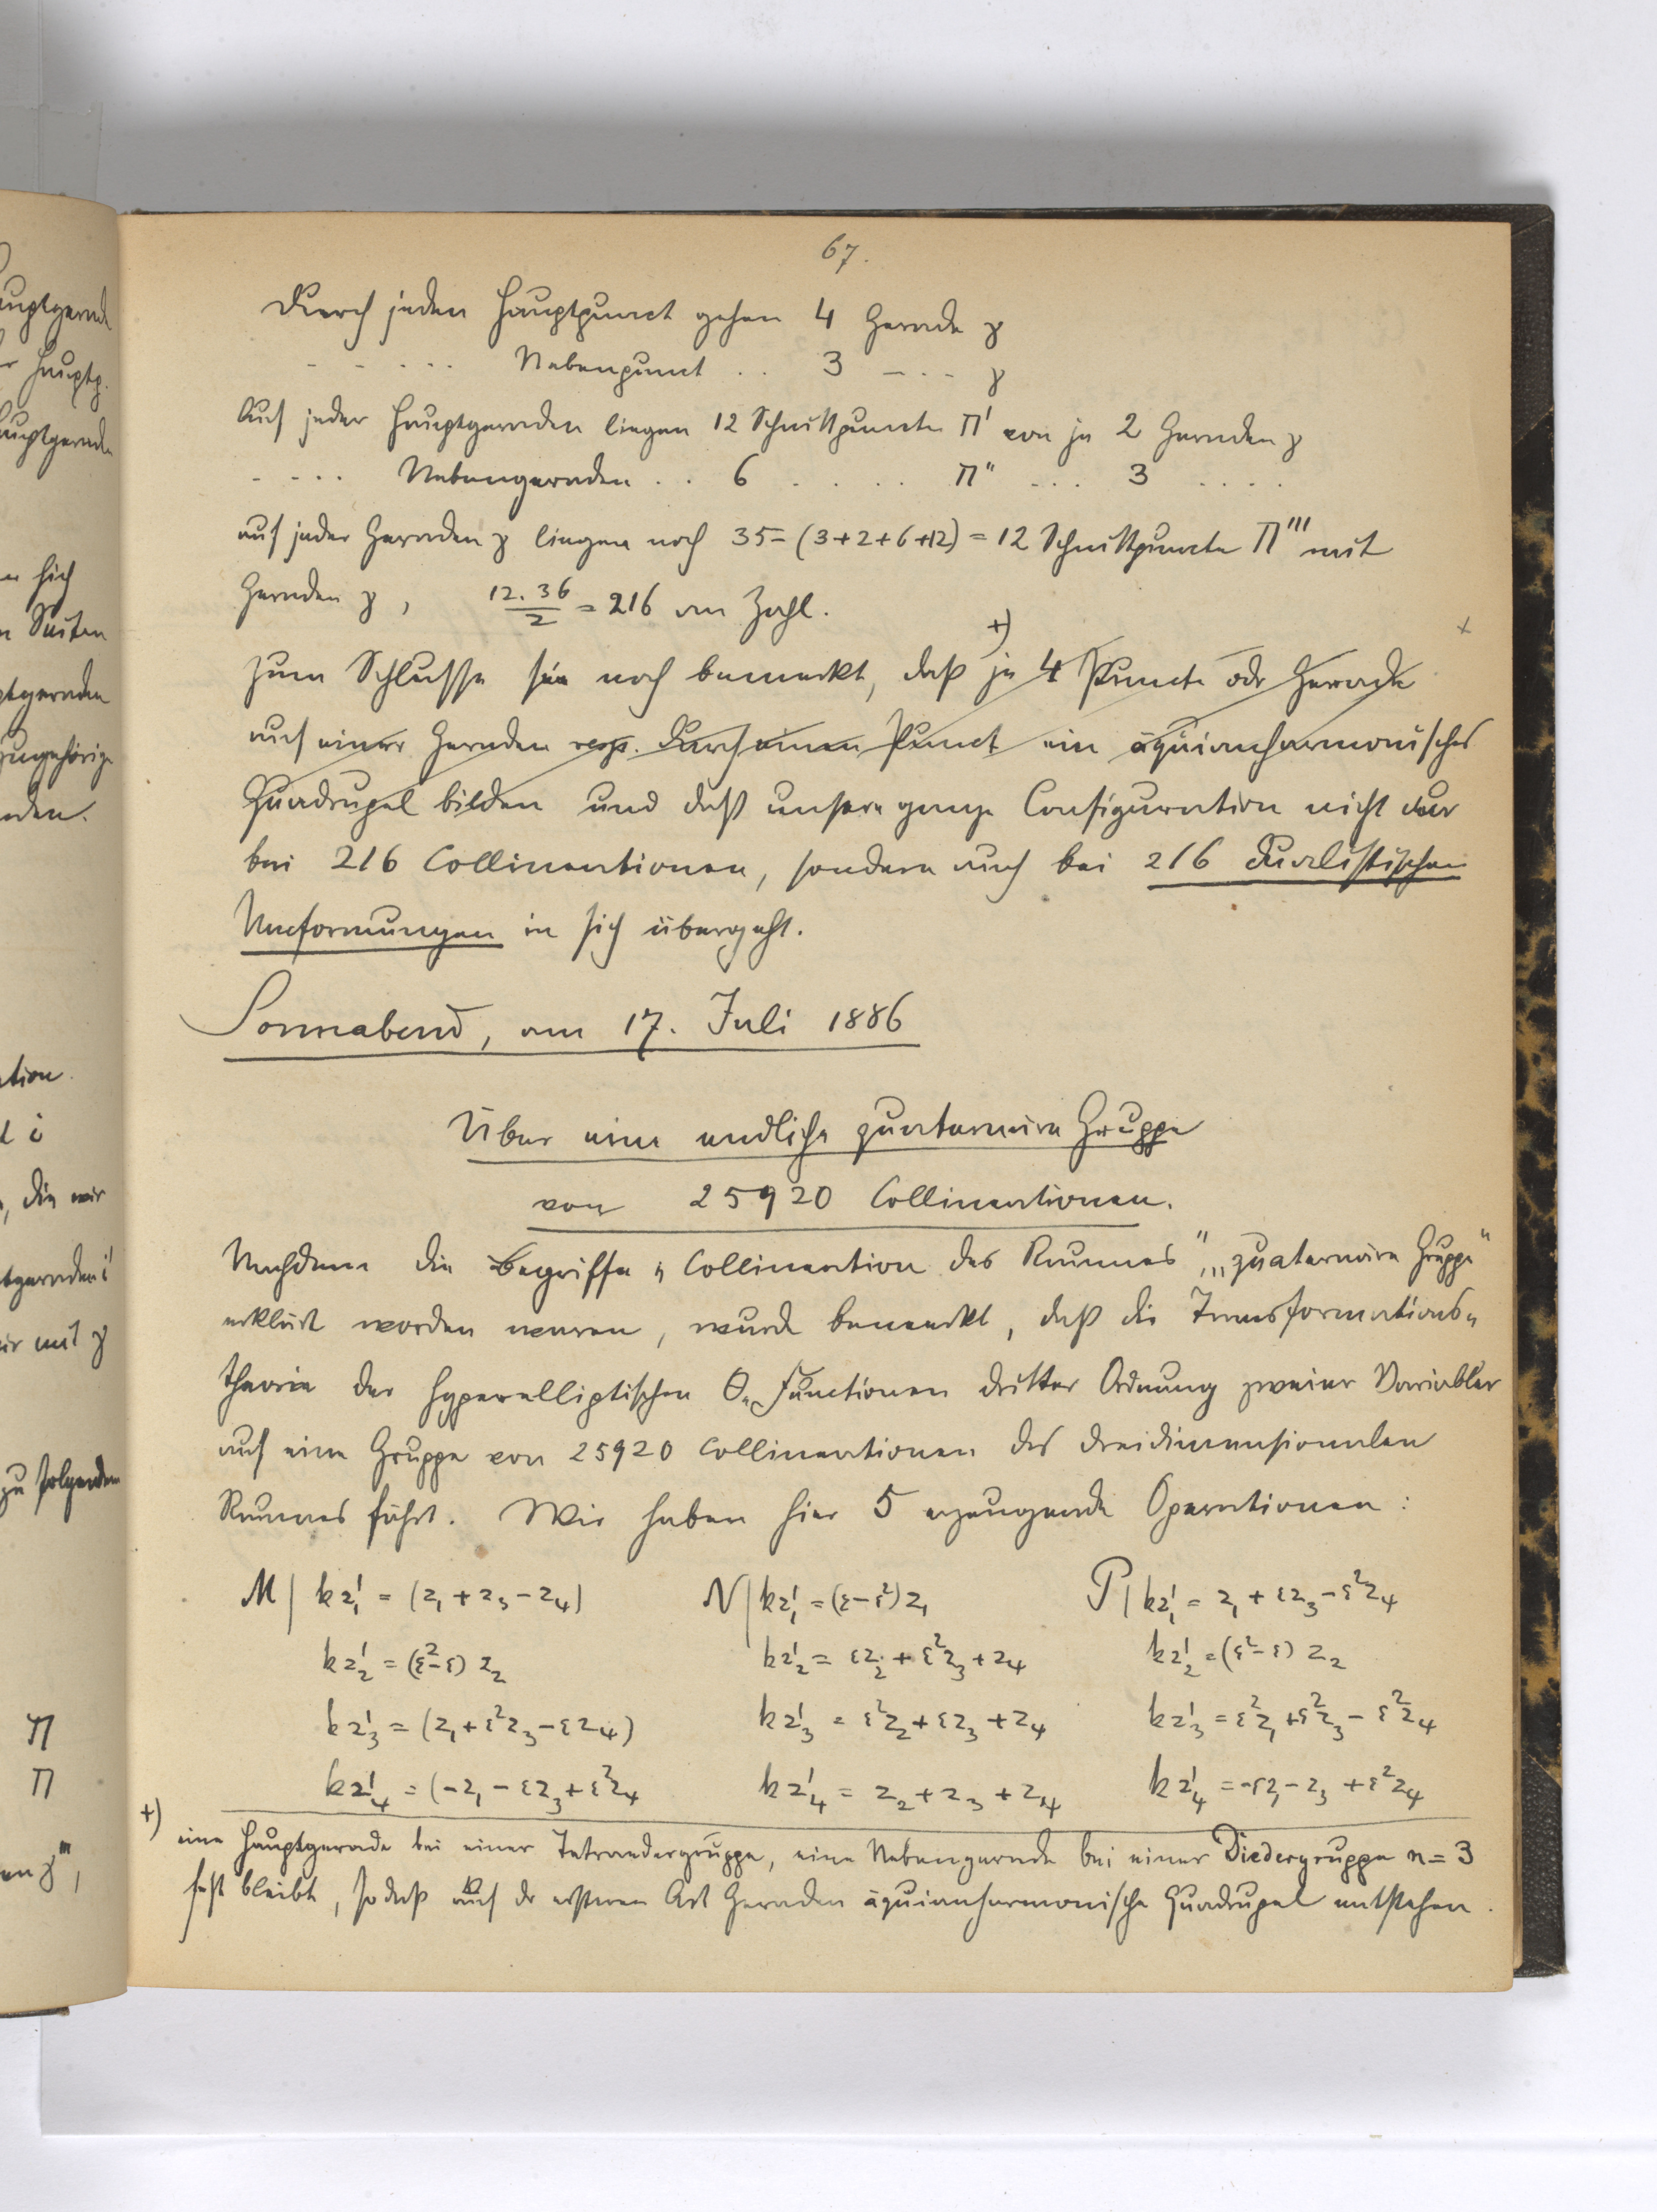 67.
Durch jeden Hauptpunct gehen 4 Gerade γ
- - - - - Nebenpunct . . 3 - - - γ
Auf jeder Hauptgeraden liegen 12 Schnittpuncte Π' von je 2 Geraden γ
- - - - Nebengeraden . . 6 . . . . Π" . . . 3 . . . .
auf jeder Geraden γ liegen noch 35-(3+2+6+12) = 12 Schnittpuncte Π''' mit
Geraden γ, 12.36/2 = 216 an Zahl.
Zum Schlusse sei noch bemerkt, daß +) je 4 Puncte oder Gerade +
auf einer Geraden resp. durch einen Punct ein äquianharmonisches
Quadrupel bilden und daß unsere ganze Configuration nicht nur
bei 216 Collineationen, sondern auch bei 216 dualistischen
Umformungen in sich übergeht.
Sonnabend, am 17. Juli 1886
Über eine endliche quaternäre Gruppe
von 25920 Collineationen.
Nachdem die Begriffe „Collineation des Raumes", „quaternäre Gruppe"
erklärt worden waren, wurde bemerkt, daß die Transformations-
theorie der hyperelliptischen Θ-Functionen dritter Ordnung zweier Variabler
auf eine Gruppe von 25920 Collineationen des dreidimensionalen
Raumes führt. Wir haben hier 5 erzeugende Operationen:
M | kz₁' = (z₁ + z₃ - z₄) N | kz₁' = (ε-ε²)z₁ P | kz₁' = z₁ + εz₃ - ε²z₄
kz₂' = (ε²-ε) z₂ kz₂' = εz₂ + ε²z₃ + z₄ kz₂' = (ε²-ε) z₂
kz₃' = (z₁ + ε²z₃ - εz₄) kz₃' = ε²z₂ + εz₃ + z₄ kz₃' = ε²z₁ + ε²z₃ - ε²z₄
kz₄' = (-z₁ - εz₃ + ε²z₄ kz₄' = z₂ + z₃ + z₄ kz₄' = -εz₁ - z₃ + ε²z₄
+) eine Hauptgerade bei einer Tetraedergruppe, eine Nebengerade bei einer Diedergruppe n = 3
fest bleibt, so daß auf der ersteren Art Geraden äquianharmonische Quadrupel entstehen.
uptgerade
r Hauptg.
auptgerade
n sich
n Seiten
ptgeraden
zugehörige
aden.
ation.
d i
, die wir
tgeraden i'
ir mit γ
zu folgenden
Π
Π
en γ''',